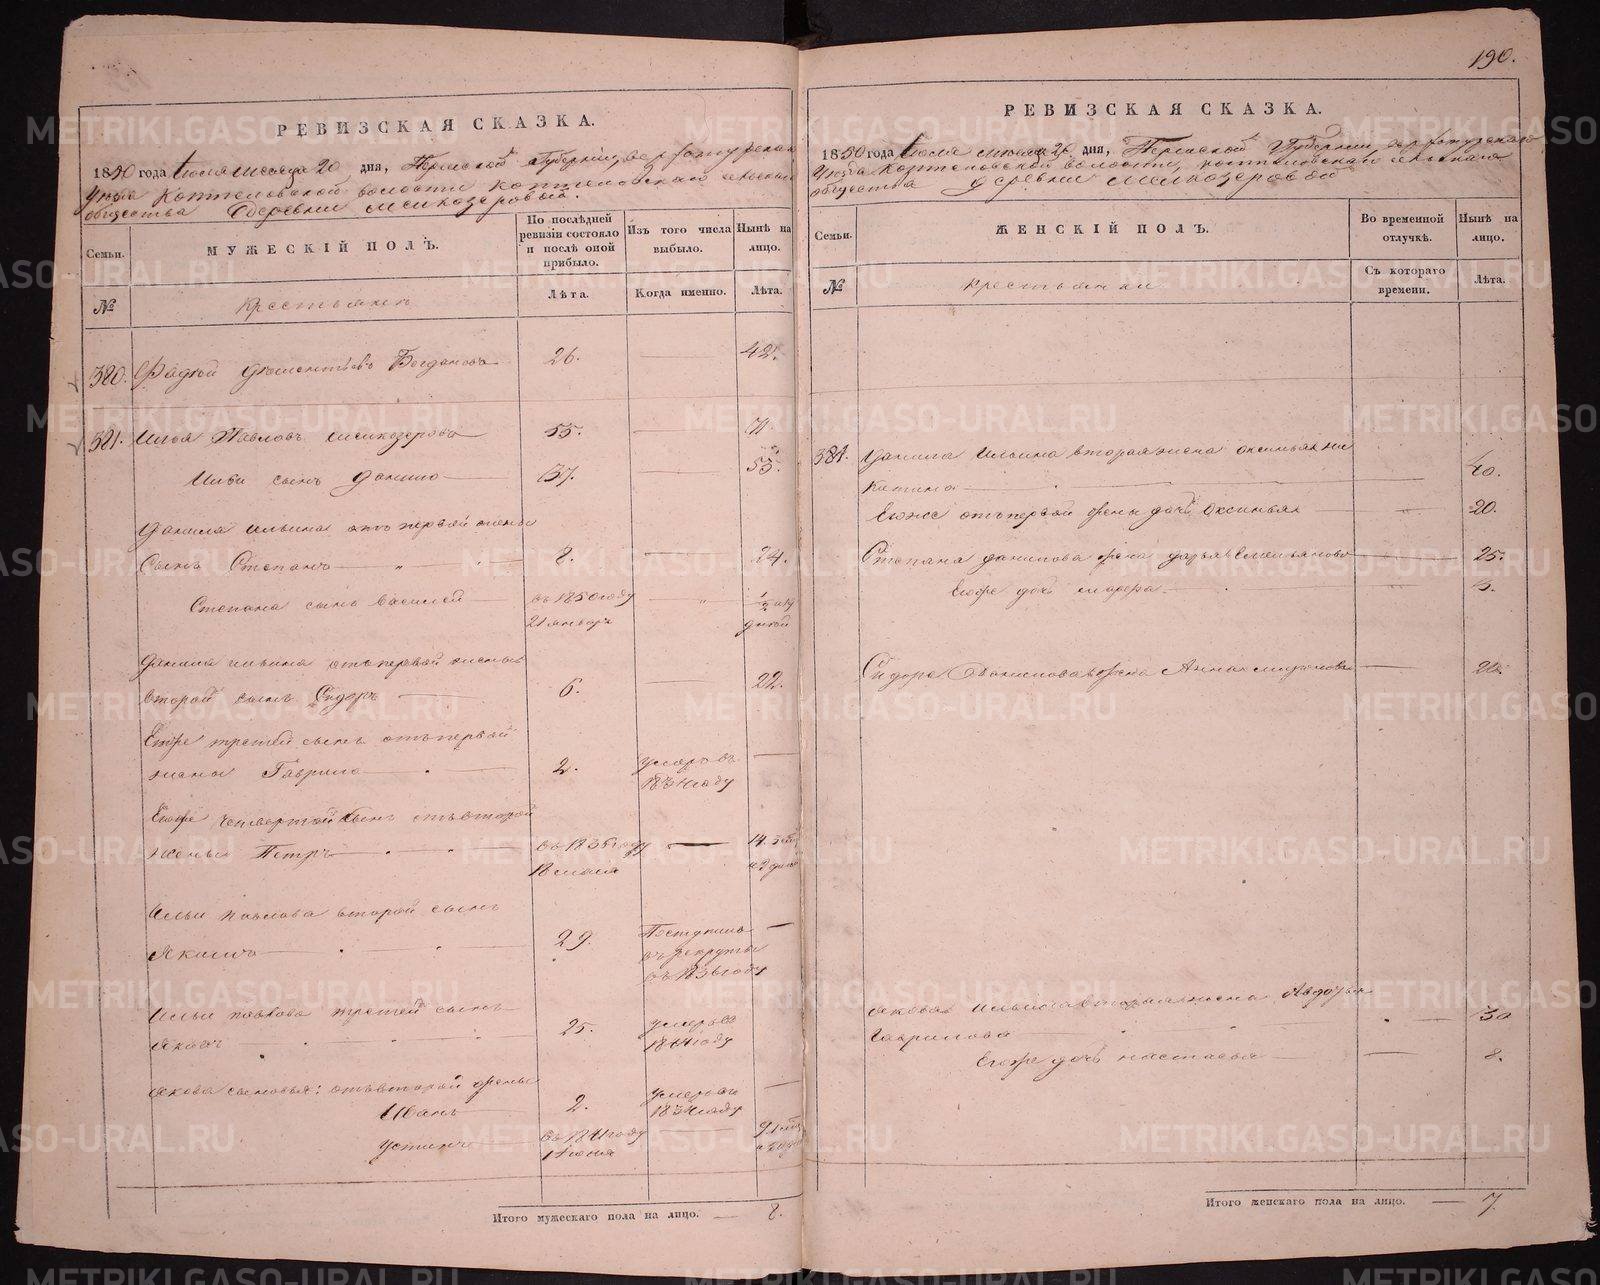 190.
РЕВИЗСКАЯ СКАЗКА.
1850 года Июля месяца 20 дня, Пермской Губернии, Верхотурскаго
Уезда Коптеловской волости Коптеловскаго сельскаго
общества деревни Мелкозеровой.
Семьи.
МУЖЕСКІЙ ПОЛЪ.
По послѣдней ревизіи состояло и послѣ оной прибыло.
Изъ того числа выбыло.
Нынѣ на лицо.
№
Крестьяне
Лѣта.
Когда именно.
Лѣта.
380. Фадей Дементьевъ Богдановъ 26. 42.
381. Илья Павловъ Мелкозеровъ 55. 71.
Ильи сынъ Данило 37. 53.
Данила Ильина отъ первой жены
сынъ Степанъ 8. 24.
Степана сынъ Василей въ 1850 году
21 января
Данила Ильина отъ первой жены
второй сынъ Сидоръ 6. 22.
Егоже третей сынъ отъ первой
жены Гаврило 2. умеръ въ
1834 году
Егоже четвертой сынъ отъ второй
жены Петръ въ 1836 году 14.
18 мая
Ильи Павлова второй сынъ
Якимъ 29. Поступилъ
въ рекруты
въ 1836 году
Ильи Павлова третей сынъ
Яковъ 25. умеръ въ
1841 году
Якова сыновья: отъ второй жены
Иванъ 2. умеръ въ
1834 году
Устинъ въ 1841 году 9
1 Июня
Итого мужескаго пола на лицо. — 8.
РЕВИЗСКАЯ СКАЗКА.
1850 года Июля месяца 20 дня, Пермской Губернии Верхотурскаго
Уезда Коптеловской волости, Коптеловскаго сельскаго
общества деревни Мелкозеровой
Семьи.
ЖЕНСКІЙ ПОЛЪ.
Во временной отлучкѣ.
Нынѣ на лицо.
№
Крестьянки
Съ котораго времени.
Лѣта.
381. Данила Ильина вторая жена Оксинья Ни
китина 40.
Егоже отъ первой жены дочь Оксинья 20.
Степана Данилова жена Дарья Емельянова 25.
Егоже дочь Марфа 5.
Сидора Данилова жена Анна 22.
Якова Ильина вторая жена Авдотья
Гаврилова 30
Егоже дочь Настасья 8.
Итого женскаго пола на лицо. — 7.
METRIKI.GASO-URAL.RU